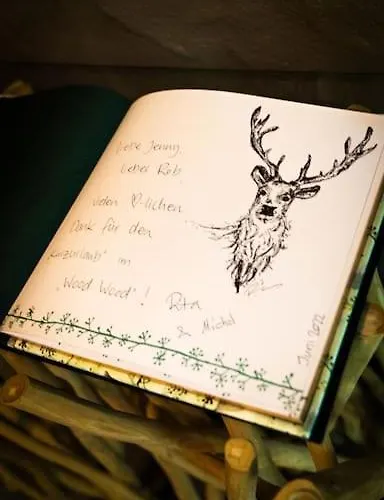 Liebe Jenny,
lieber Rob,
vielen ♡-lichen
Dank für den
„Kurzurlaub" im
„Wood Wood"!
Rita
& Michel
Juni 2022